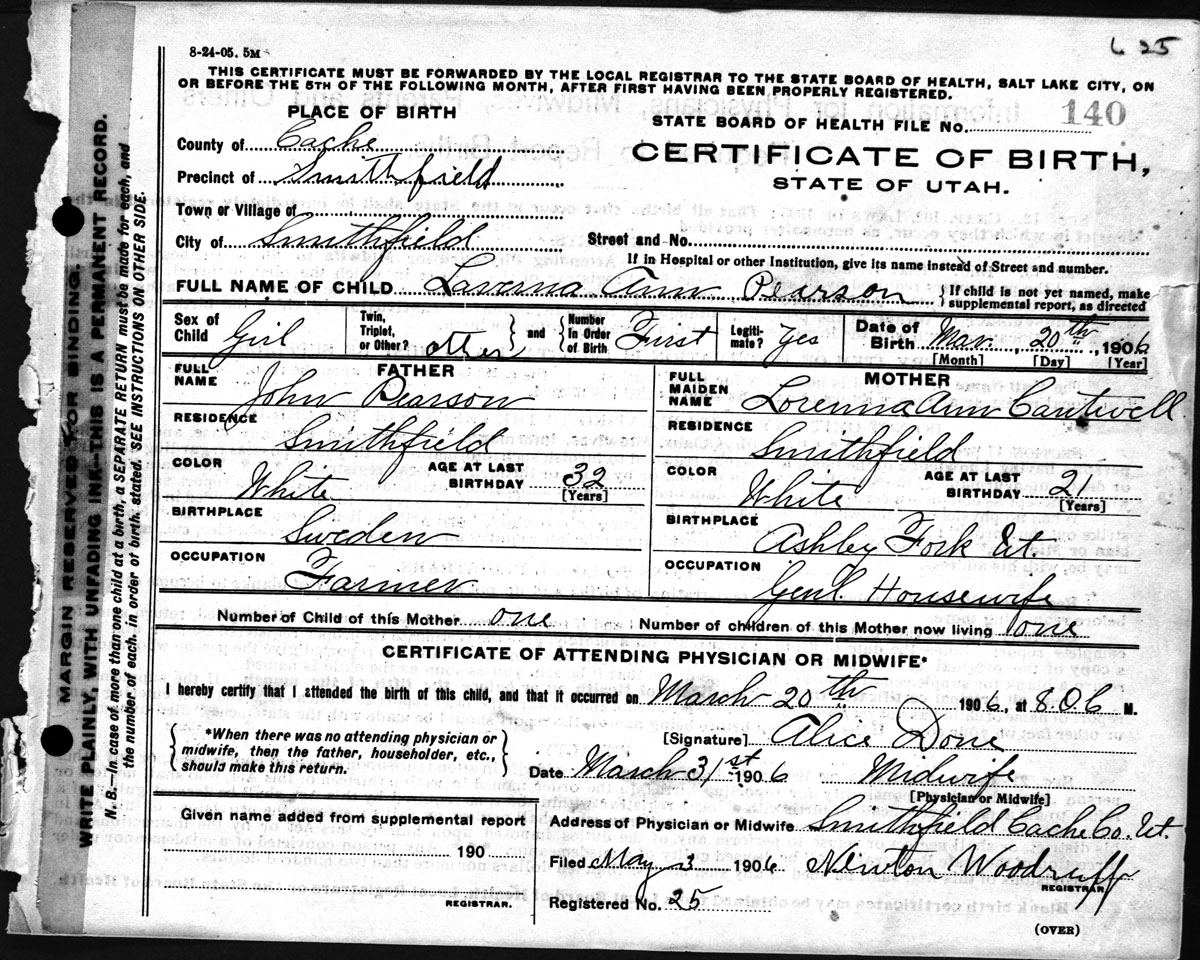 8-24-05. 5M
625
THIS CERTIFICATE MUST BE FORWARDED BY THE LOCAL REGISTRAR TO THE STATE BOARD OF HEALTH, SALT LAKE CITY, ON
OR BEFORE THE 5TH OF THE FOLLOWING MONTH, AFTER FIRST HAVING BEEN PROPERLY REGISTERED.
PLACE OF BIRTH
STATE BOARD OF HEALTH FILE No. 140
County of Cache
CERTIFICATE OF BIRTH,
Precinct of Smithfield
STATE OF UTAH.
Town or Village of
City of Smithfield Street and No.
If in Hospital or other Institution, give its name instead of Street and number.
FULL NAME OF CHILD Laverna Ann Pearson { If child is not yet named, make supplemental report, as directed
Sex of Child Girl Twin, Triplet, or Other? other } and { Number in Order of Birth First Legitimate? Yes Date of Birth Mar. 20th, 1906
[Month] [Day] [Year]
FATHER
MOTHER
FULL NAME John Pearson
FULL MAIDEN NAME Lorenna Ann Cantwell
RESIDENCE Smithfield
RESIDENCE Smithfield
COLOR White AGE AT LAST BIRTHDAY 32 [Years]
COLOR White AGE AT LAST BIRTHDAY 21 [Years]
BIRTHPLACE Sweden
BIRTHPLACE Ashby Fork Ut.
OCCUPATION Farmer
OCCUPATION Genl. Housewife
Number of Child of this Mother one Number of children of this Mother now living one
CERTIFICATE OF ATTENDING PHYSICIAN OR MIDWIFE*
I hereby certify that I attended the birth of this child, and that it occurred on March 20th 1906, at 8.06 M.
{ *When there was no attending physician or midwife, then the father, householder, etc., should make this return. }
[Signature] Alice Done
Date March 31st 1906 Midwife
[Physician or Midwife]
Given name added from supplemental report
190
REGISTRAR.
Address of Physician or Midwife Smithfield Cache Co. Ut.
Filed May 3 1906 Newton Woodruff
REGISTRAR
Registered No. 25
(OVER)
MARGIN RESERVED FOR BINDING.
WRITE PLAINLY, WITH UNFADING INK—THIS IS A PERMANENT RECORD.
N. B.—In case of more than one child at a birth, a SEPARATE RETURN must be made for each, and
the number of each, in order of birth, stated. SEE INSTRUCTIONS ON OTHER SIDE.